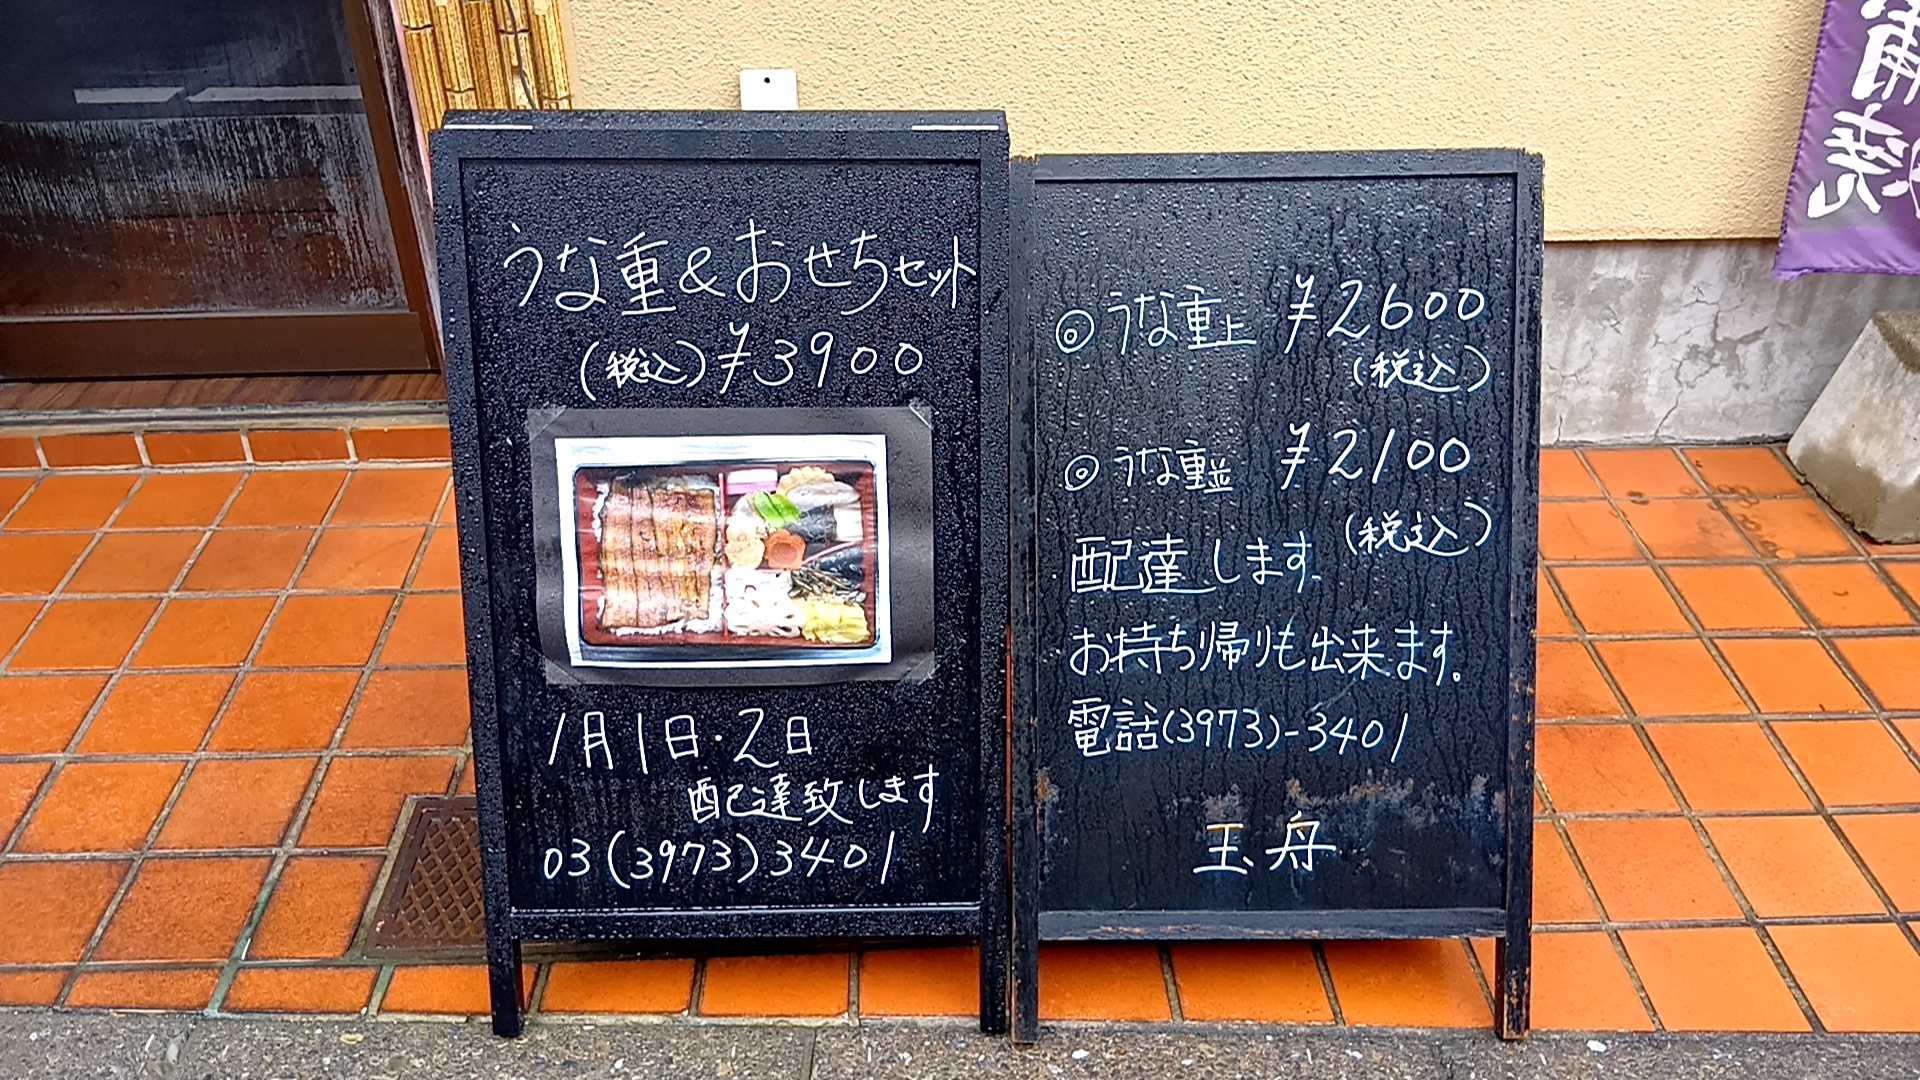 うな重&おせちセット
(税込)¥3900
1月1日・2日
配達致します
03(3973)3401
◎うな重上 ¥2600
(税込)
◎うな重並 ¥2100
(税込)
配達します。
お持ち帰りも出来ます。
電話(3973)-3401
玉舟
蒲焼